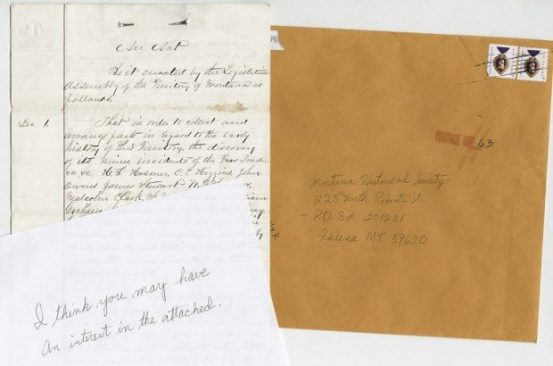 An Act
Be it enacted by the Legislative
Assembly of the Territory of Montana as
follows.
Sec 1.
That in order to collect and
arrange facts in regard to the early
history of this Territory, the discovery
of its mines incidents of the Fur Trade
H. L. Hosmer C. P. Higgins John
Owens James Stewart W.
Malcolm Clark
I think you may have
An interest in the attached.
POSTAGE DUE 63
Montana Historical Society
225 North Roberts St.
PO Bx 201201
Helena MT 59620